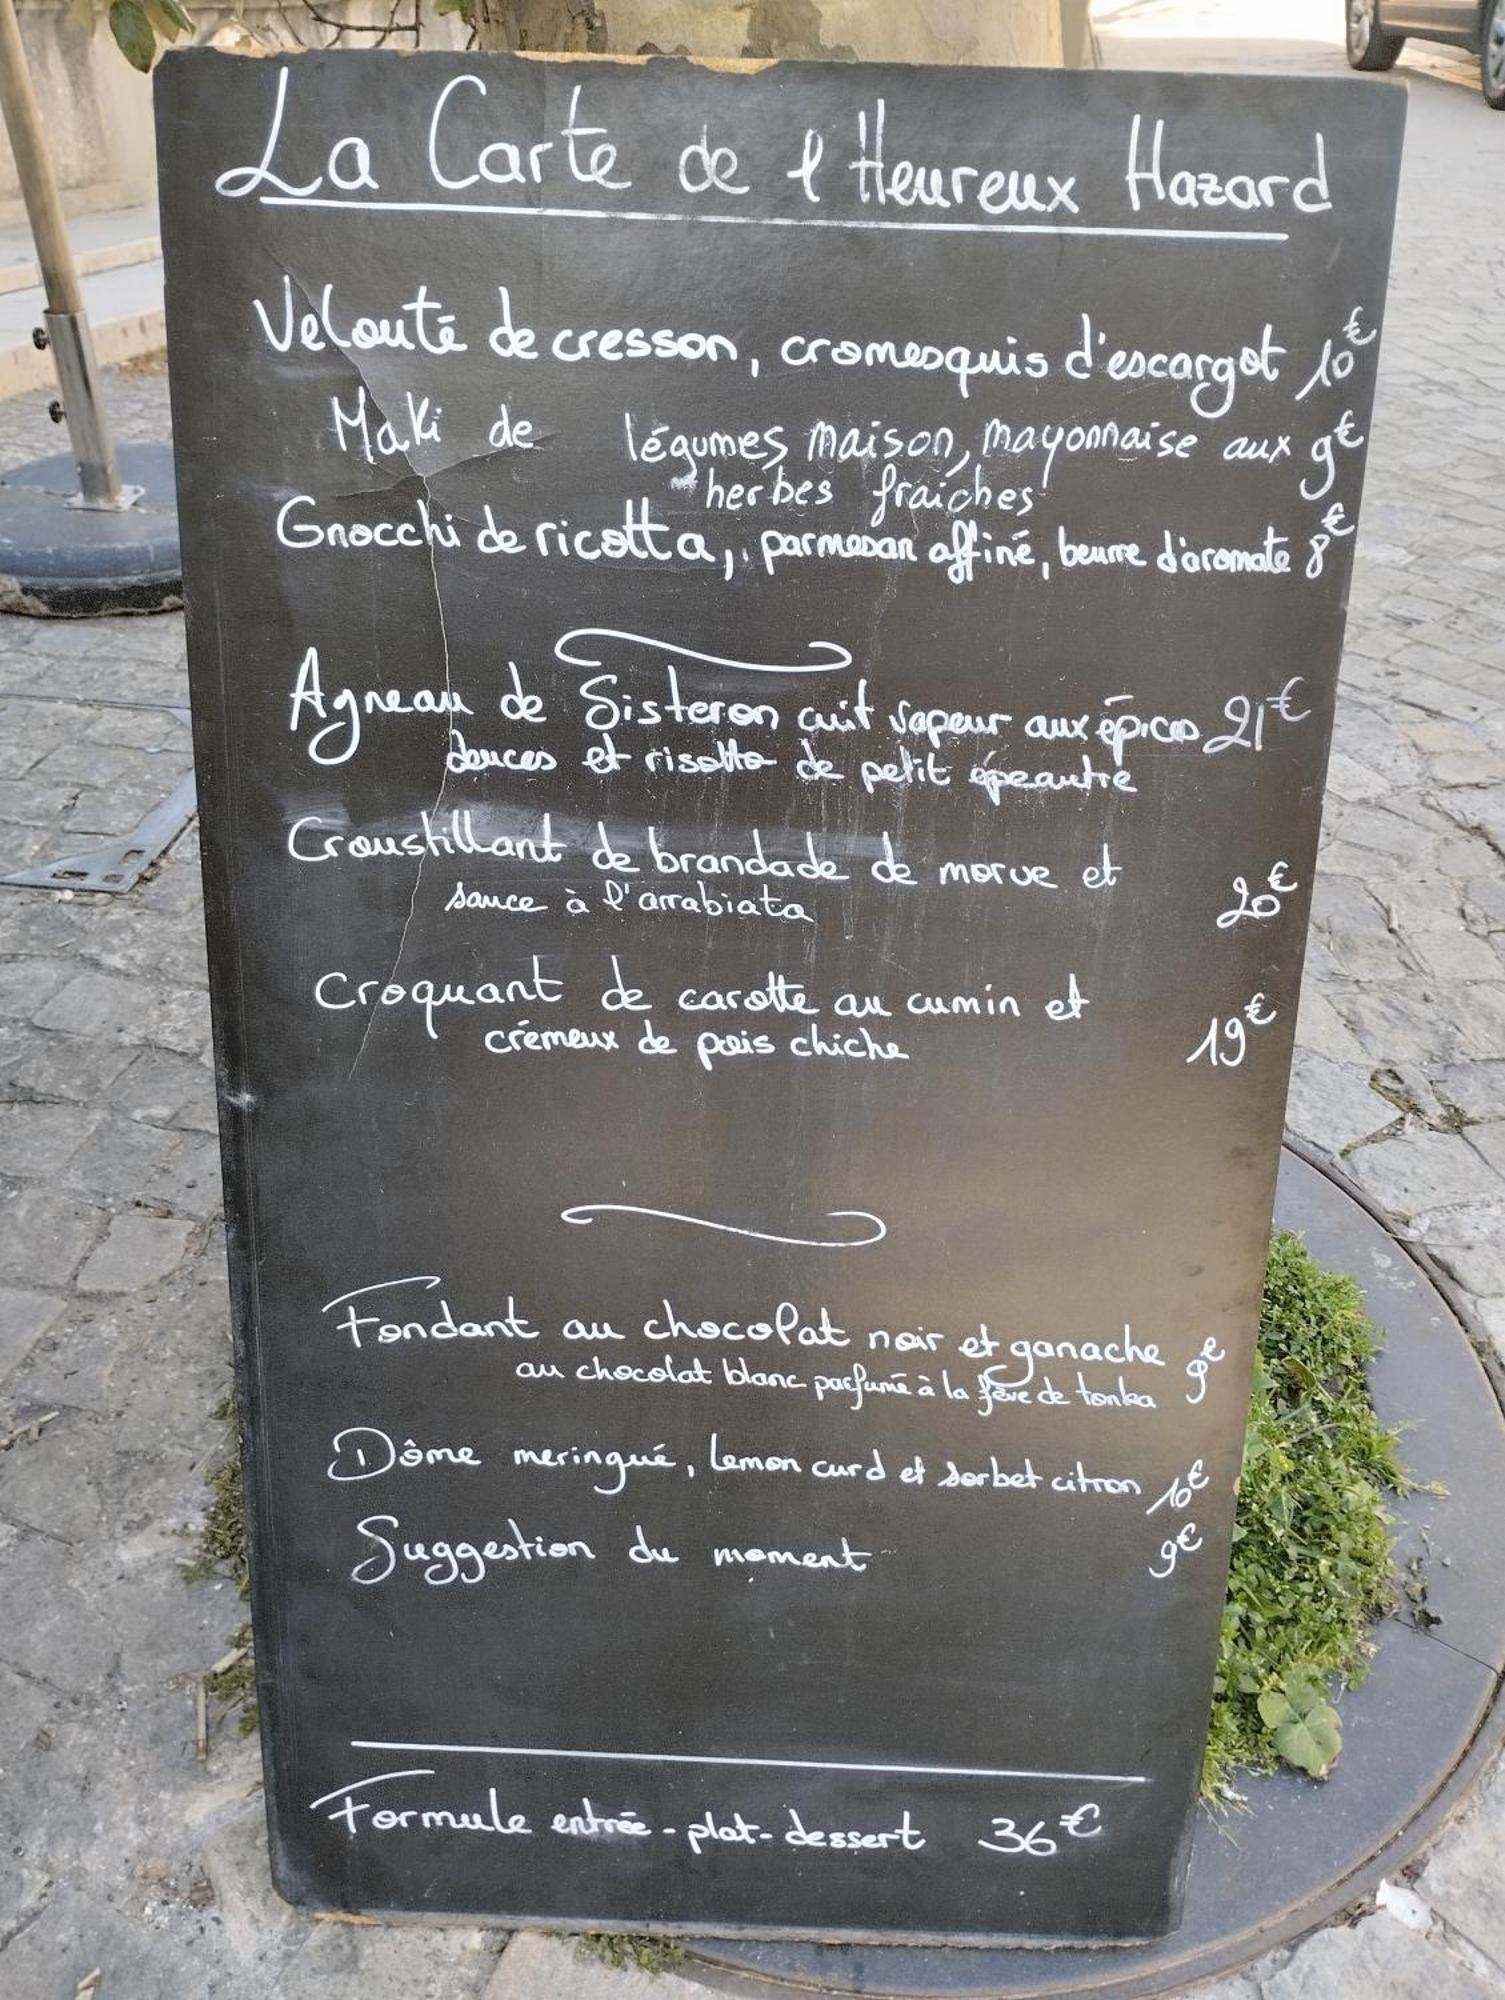 La Carte de l'Heureux Hazard
Velouté de cresson, cromesquis d'escargot 10€
Maki de légumes maison, mayonnaise aux 9€
herbes fraîches
Gnocchi de ricotta, parmesan affiné, beurre d'aromate 8€
Agneau de Sisteron cuit vapeur aux épices 21€
douces et risotto de petit épeautre
Croustillant de brandade de morue et
sauce à l'arrabiata 20€
Croquant de carotte au cumin et
crémeux de pois chiche 19€
Fondant au chocolat noir et ganache 9€
au chocolat blanc parfumé à la fève de tonka
Dôme meringué, lemon curd et sorbet citron 10€
Suggestion du moment 9€
Formule entrée-plat-dessert 36€